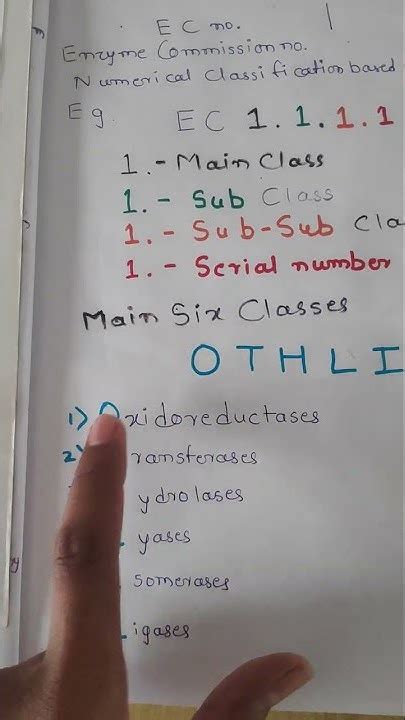 EC no.
Enzyme Commission no.
Numerical Classification based
Eg. EC 1.1.1.1
1.- Main Class
1.- Sub Class
1.- Sub-Sub Cla
1.- Serial number
Main Six Classes
OTHLI
1) Oxidoreductases
2) ransferases
ydrolases
yases
somerases
igases